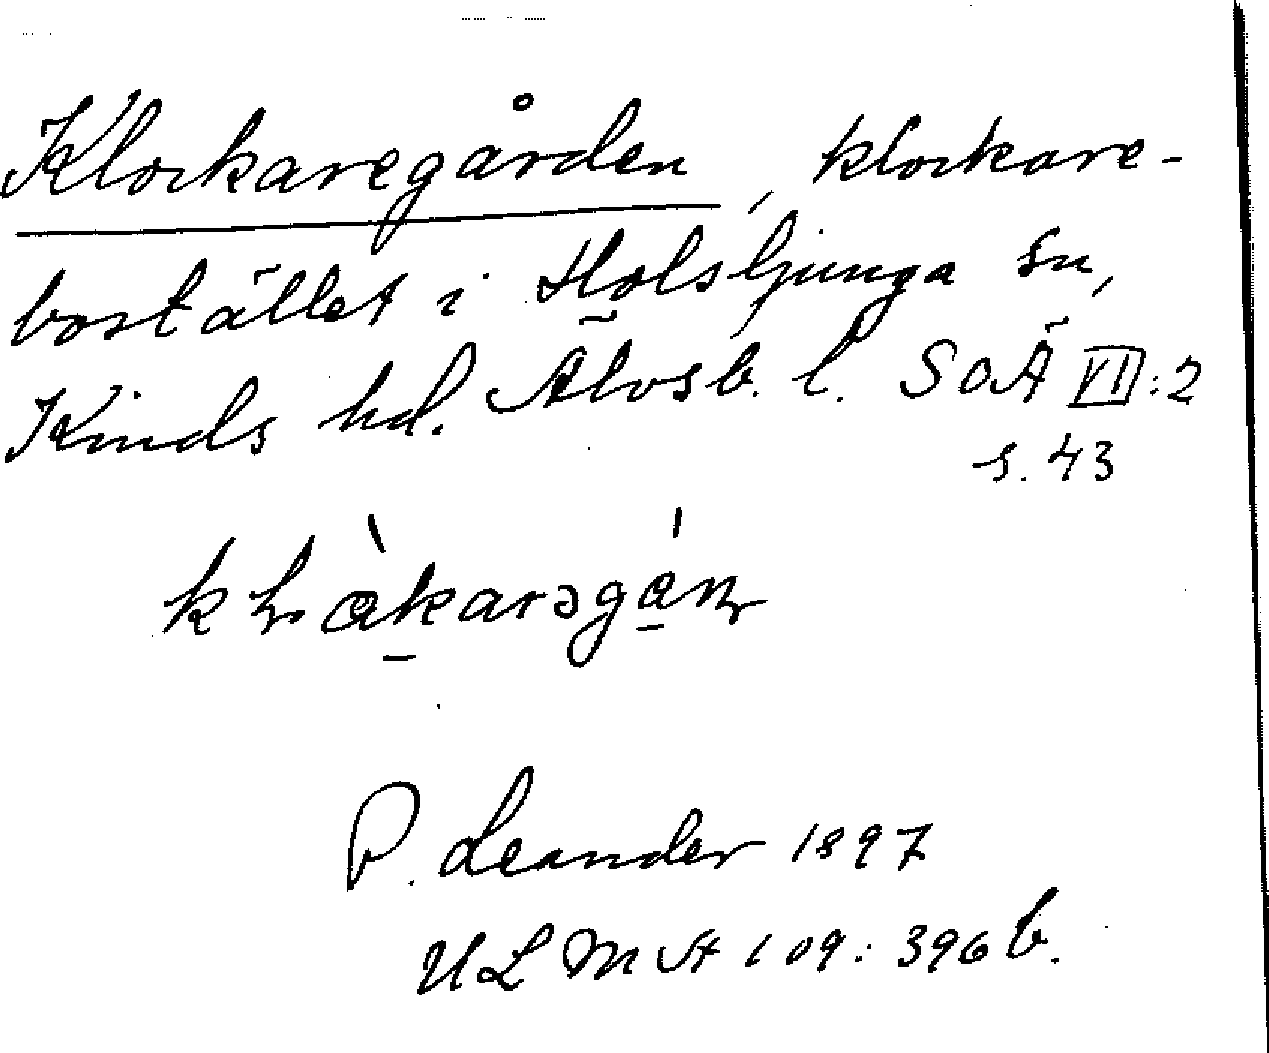 Klockaregården, klockare-
bostället i Holsljunga sn,
Kinds hd. Älvsb. l. SOÄ VII:2
s. 43
klὰkarəgán
P. Leander 1897
ULMA 109:396 b.